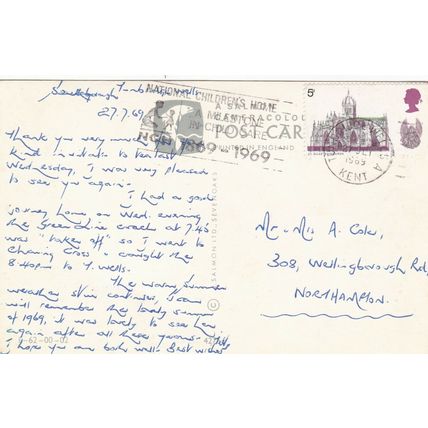 Southborough, Tunbridge Wells
27.7.69
Thank you very much for your
kind invitation to tea last
Wednesday, I was very pleased
to see you again.
I had a good
journey home on Wed. evening
the greenline coach at 7.45
was "taken off" so I went to
Charing Cross & caught the
8.40pm to T. Wells.
The warm summer
weather still continues, I am
will remember the lovely summer
of 1969, it was lovely to see
again after all these years.
I hope you are both well. Best wishes
NATIONAL CHILDREN'S HOME
A MILESTONE
IN CHILD CARE
NCH 1869-1969
A SALMON
CAMERACOLOUR
POST CARD
PRINTED IN ENGLAND
SALMON LTD., SEVENOAKS
5d
1969
KENT
Mr & Mrs A. Coles,
308, Wellingborough Rd,
NORTHAMPTON.